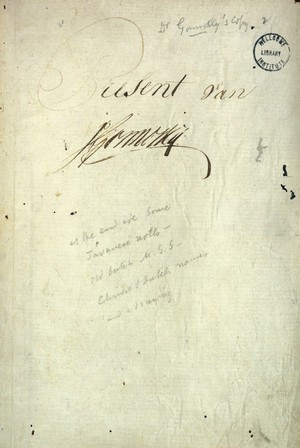 Dr Connolly's Copy. 2
WELLCOME
LIBRARY
INSTITUTE
Present Van
at the end are some
Javanese notes -
old dutch M.S.S -
Chinese & dutch names
and a drawing